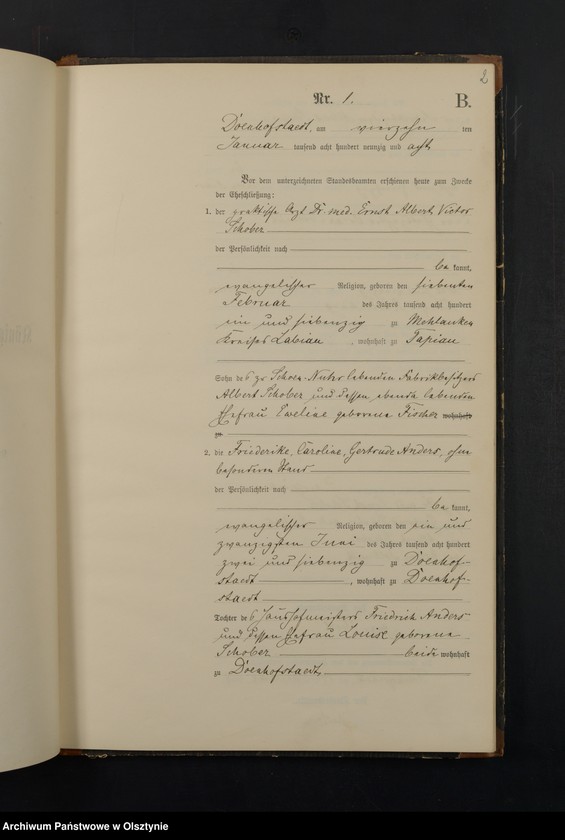 2
Nr. 1. B.
Doenhofstaedt, am vierzehn ten
Januar tausend acht hundert neunzig und acht
Vor dem unterzeichneten Standesbeamten erschienen heute zum Zwecke
der Eheschließung:
1. der praktische Arzt Dr. med. Ernst Albert Victor
Schober
der Persönlichkeit nach
be kannt,
evangelischer Religion, geboren den siebenten
Februar des Jahres tausend acht hundert
ein und siebenzig zu Mehlauken
Kreises Labiau, wohnhaft zu Tapiau
Sohn des zu lebenden Fabrikbesitzers
Albert Schober und dessen ebenda lebenden
Ehefrau Eveline geborene Fischer wohnhaft
zu
2. die Friederike, Caroline, Gertrude Anders, ohne
besonderen Stand
der Persönlichkeit nach
be kannt,
evangelischer Religion, geboren den ein und
zwanzigsten Juni des Jahres tausend acht hundert
zwei und siebenzig zu Doenhof-
staedt, wohnhaft zu Doenhof-
staedt
Tochter des Haushofmeisters Friedrich Anders
und dessen Ehefrau Louise geborene
Schober beide wohnhaft
zu Doenhofstaedt,
Archiwum Państwowe w Olsztynie